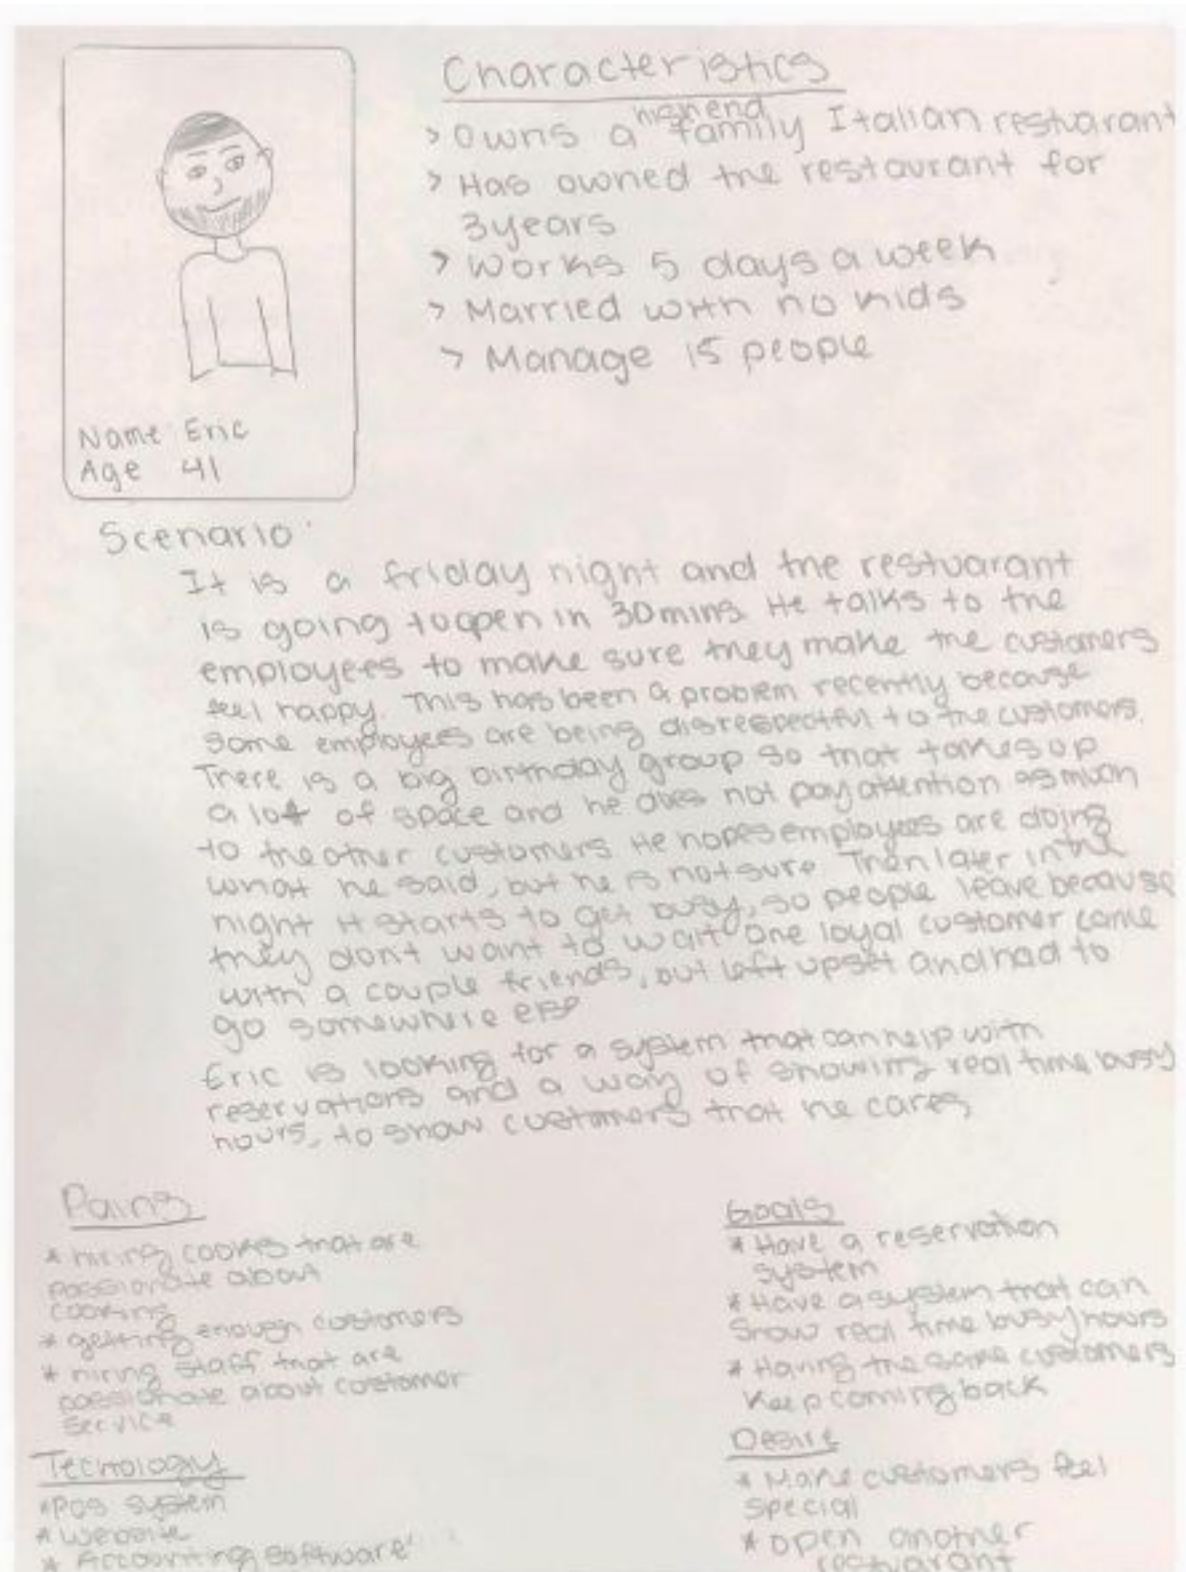 Characteristics
> Owns a highend family Italian restuarant
> Has owned the restaurant for
3 years
> Works 5 days a week
> Married with no kids
> Manage 15 people
Name Eric
Age 41
Scenario
It is a friday night and the restuarant
is going to open in 30 mins. He talks to the
employees to make sure they make the customers
feel happy. This has been a problem recently because
some employees are being disrespectful to the customers.
There is a big birthday group so that takes up
a lot of space and he does not pay attention as much
to the other customers He hopes employees are doing
what he said, but he is not sure. Then later in the
night it starts to get busy, so people leave because
they dont want to wait one loyal customer came
with a couple friends, but left upset and had to
go somewhere else
Eric is looking for a system that can help with
reservations and a way of showing real time busy
hours, to show customers that he cares
Pains
* hiring cooks that are
passionate about
cooking
* getting enough customers
* hiring staff that are
passionate about customer
service
Tecnology
* POS system
* website
* Accounting software
Goals
* Have a reservation
system
* Have a system that can
Show real time busy hours
* Having the same customers
Keep coming back
Desire
* Make customers feel
special
* open another
restuarant